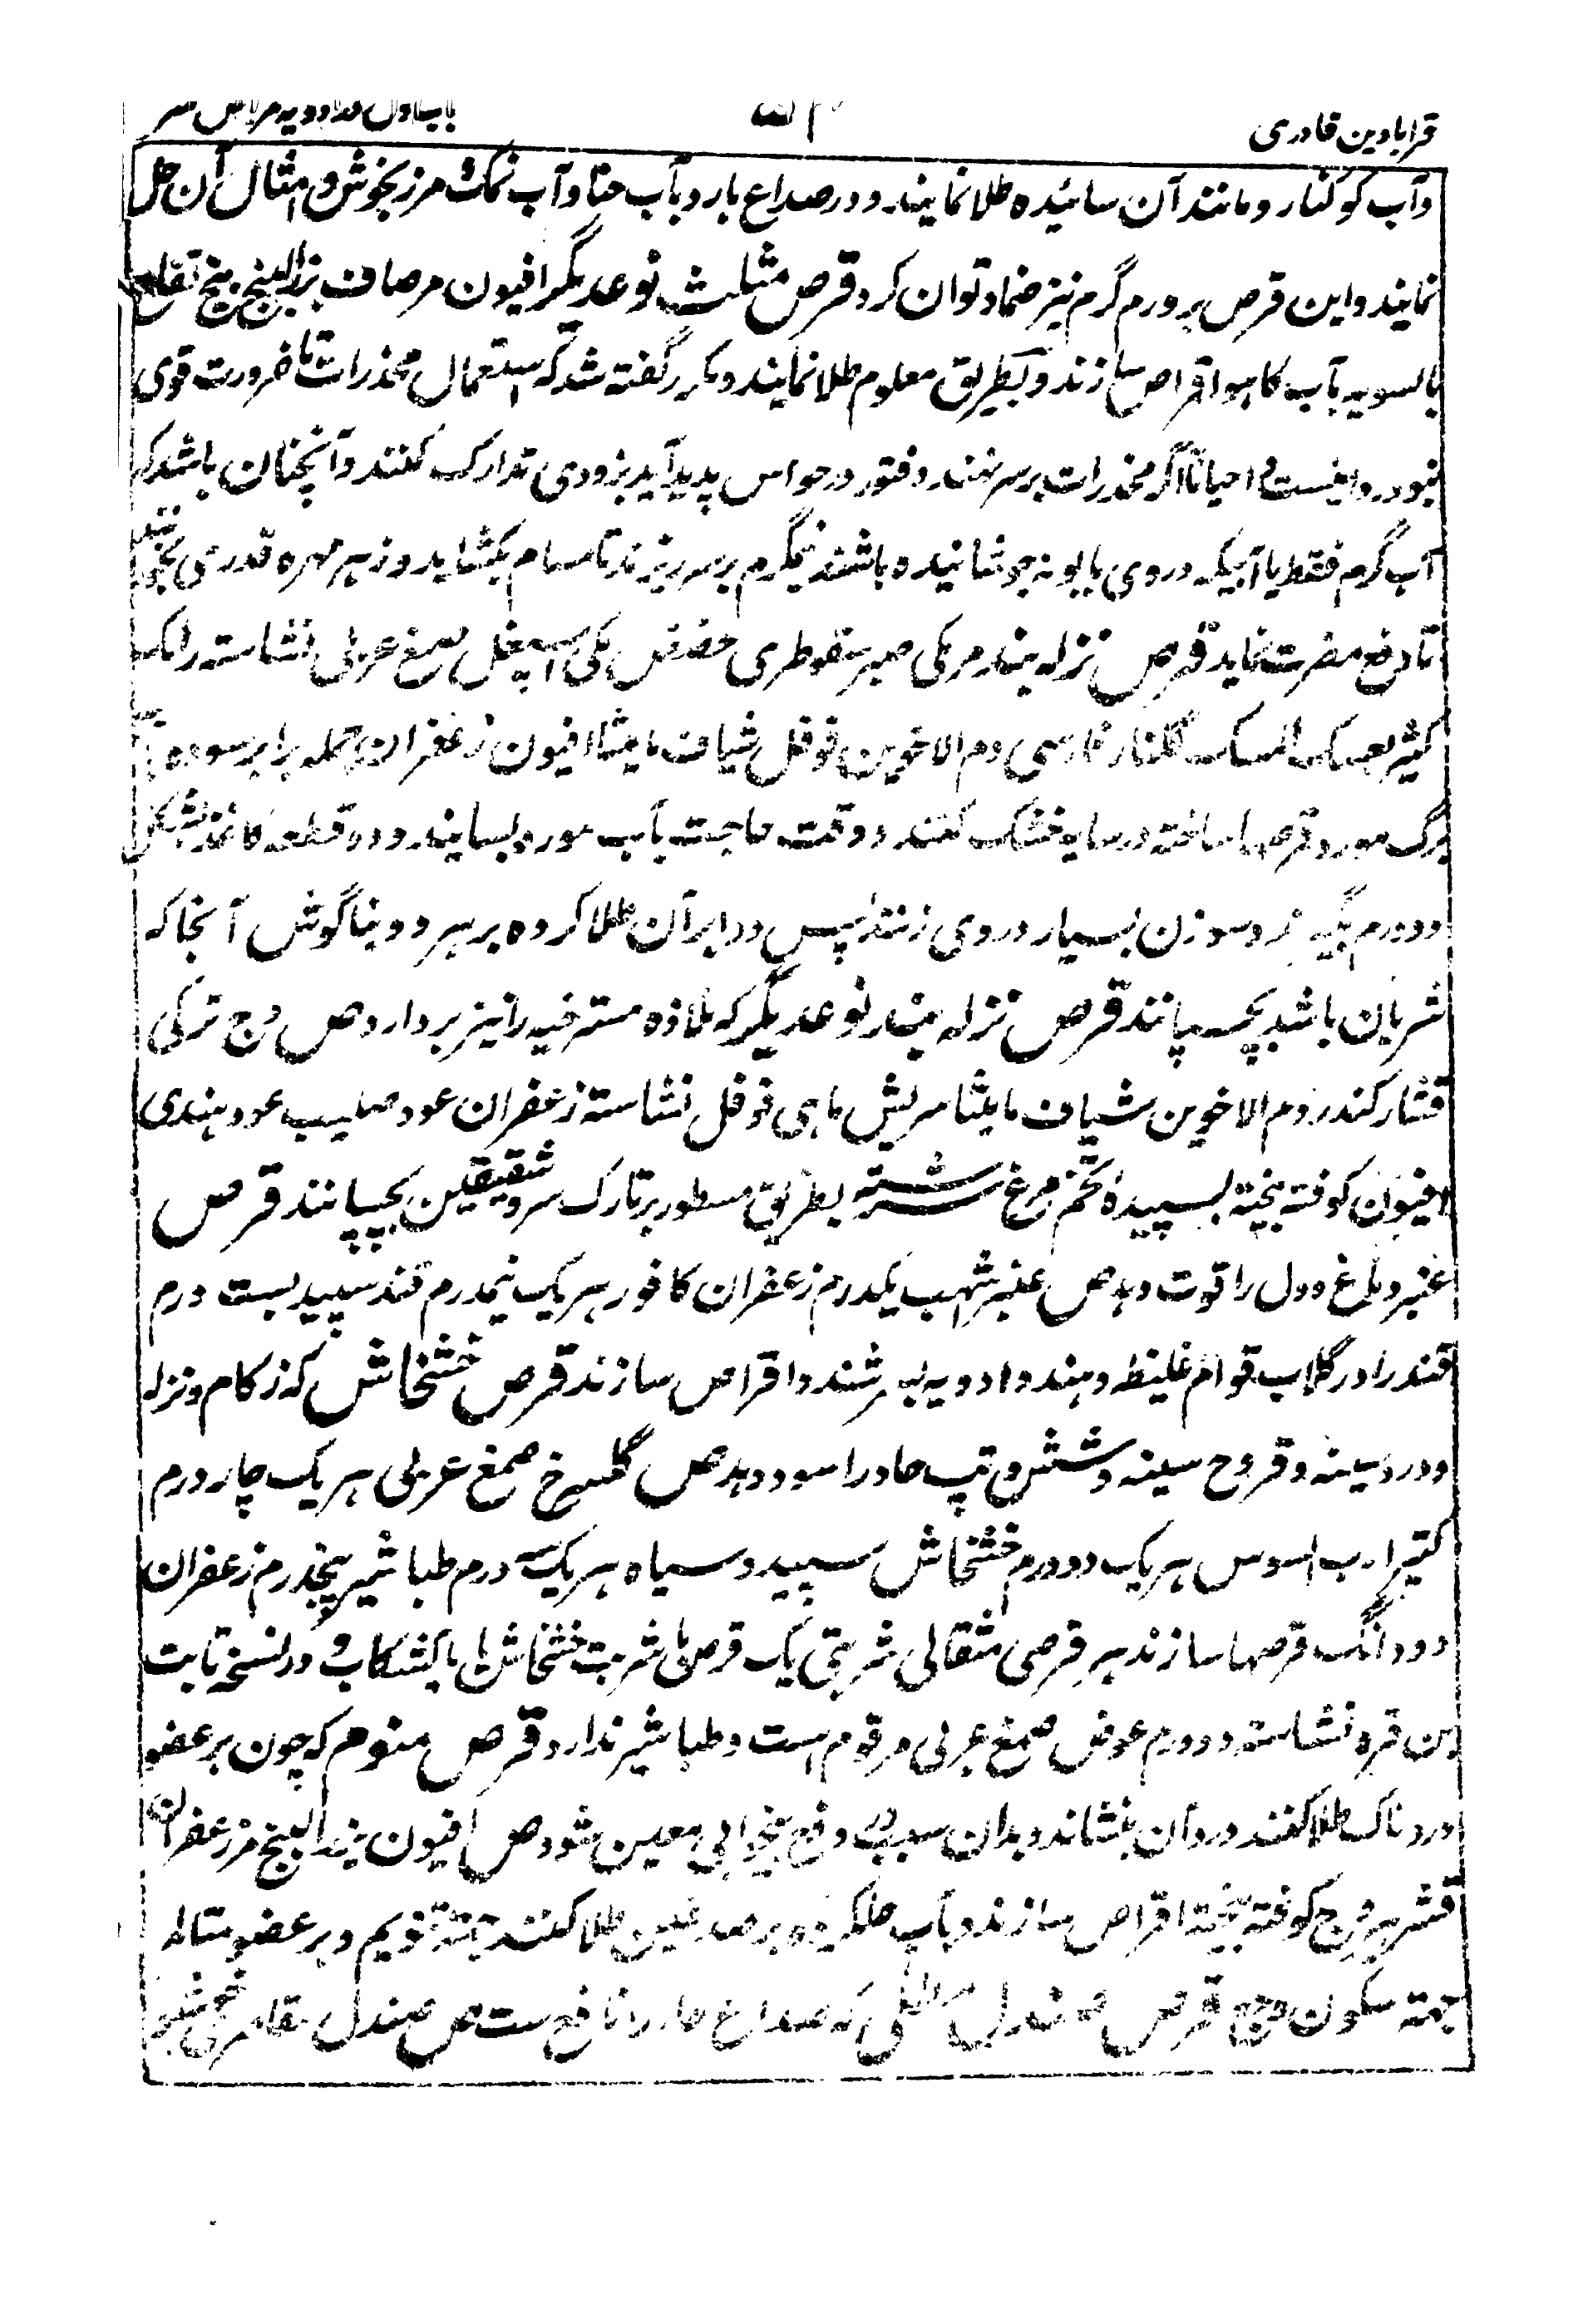 قرابادین قادری
باب اول در ادویه امراض سر
وآب کوکنار و مانند آن سائیده طلا نمایند و در صداع بارد بآب حنا و آب نمک مرزنجوش و امثال آن حل
نمایند و این قرص بر ورم گرم نیز ضماد توان کرد قرص مثلث نوعدیگر افیون مر صاف بزرالبنج بیخ تفاح
بالسویه بآب کاهو اقراص سازند و بطریق معلوم طلا نمایند و مکرر گفته شد که استعمال مخدرات تا ضرورت قوی
نبود روا نیست و احیاناً اگر مخدرات بر سر نهند و فتور در حواس پدید آید بزودی تدارک کنند و آنچنان باشد که
آب گرم فقط یا آبیکه در وی بابونه جوشانیده باشند نیمگرم بر سر ریزند تا مسام بکشاید و زهر مهره قدری
تا دفع مضرت نماید قرص نزله بند مر مکی صبر سقوطری حضض مکی اسپغل صمغ عربی نشاسته رامک
کثیرا سک المسک گلنار فارسی دم الاخوین فوفل شیاف مامیثا افیون زعفران جمله برابر سوده
برگ مورد قرصها ساخته در سایه خشک کنند و وقت حاجت بآب مورد بسایند و دو قطعه کاغذ
و مدور بگیرند و سوزن بسیار در وی زنند پس دوا بر آن طلا کرده بر هر دو بناگوش آنجا که
شریان باشد بچسپانند قرص نزله بند نوعدیگر که ملازه مسترخیه را نیز بردارد ص وج ترکی
قشار کندر دم الاخوین شیاف مامیثا سریش ماهی فوفل نشاسته زعفران عود صلیب عود هندی
افیون کوفته بیخته بسپیدۀ تخم مرغ سرشته بطریق مسطور بر تارک سر و شقیقین بچپپانند قرص
عنبر دماغ و دل را قوت دهد ص عنبر اشهب یکدرم زعفران کافور هر یک نیمدرم قند سپید بست درم
قند را در گلاب قوام غلیظ دهند و ادویه بسرشند و اقراص سازند قرص خشخاش که زکام و نزله
و درد سینه و قروح سینه و شش و تپ حاد را سود دهد ص گلسرخ صمغ عربی هر یک چار درم
کتیرا رب السوس هر یک دو درم خشخاش سپید و سیاه هر یک سه درم طباشیر پنجدرم زعفران
دو دانگ قرصها سازند هر قرصی مثقالی شربتی یک قرص با شربت خشخاش یا با کشکاب و در نسخه ثابت
بن قره نشاسته دو درم عوض صمغ عربی مرقوم است و طباشیر ندارد قرص منوم که چون بر عضو
دردناک طلا کنند درد آن بنشاند و بدان سبب در دفع بیخوابی معین شود ص افیون بزرالبنج مر زعفران
قشر یبروج کوفته بیخته اقراص سازند و بآب حلکرده بر صدغین طلا کنند جهته تنویم و بر عضو متالم
جهته سکون وجع قرص صندل که صداع حار را نافع ست ص صندل مقاصری